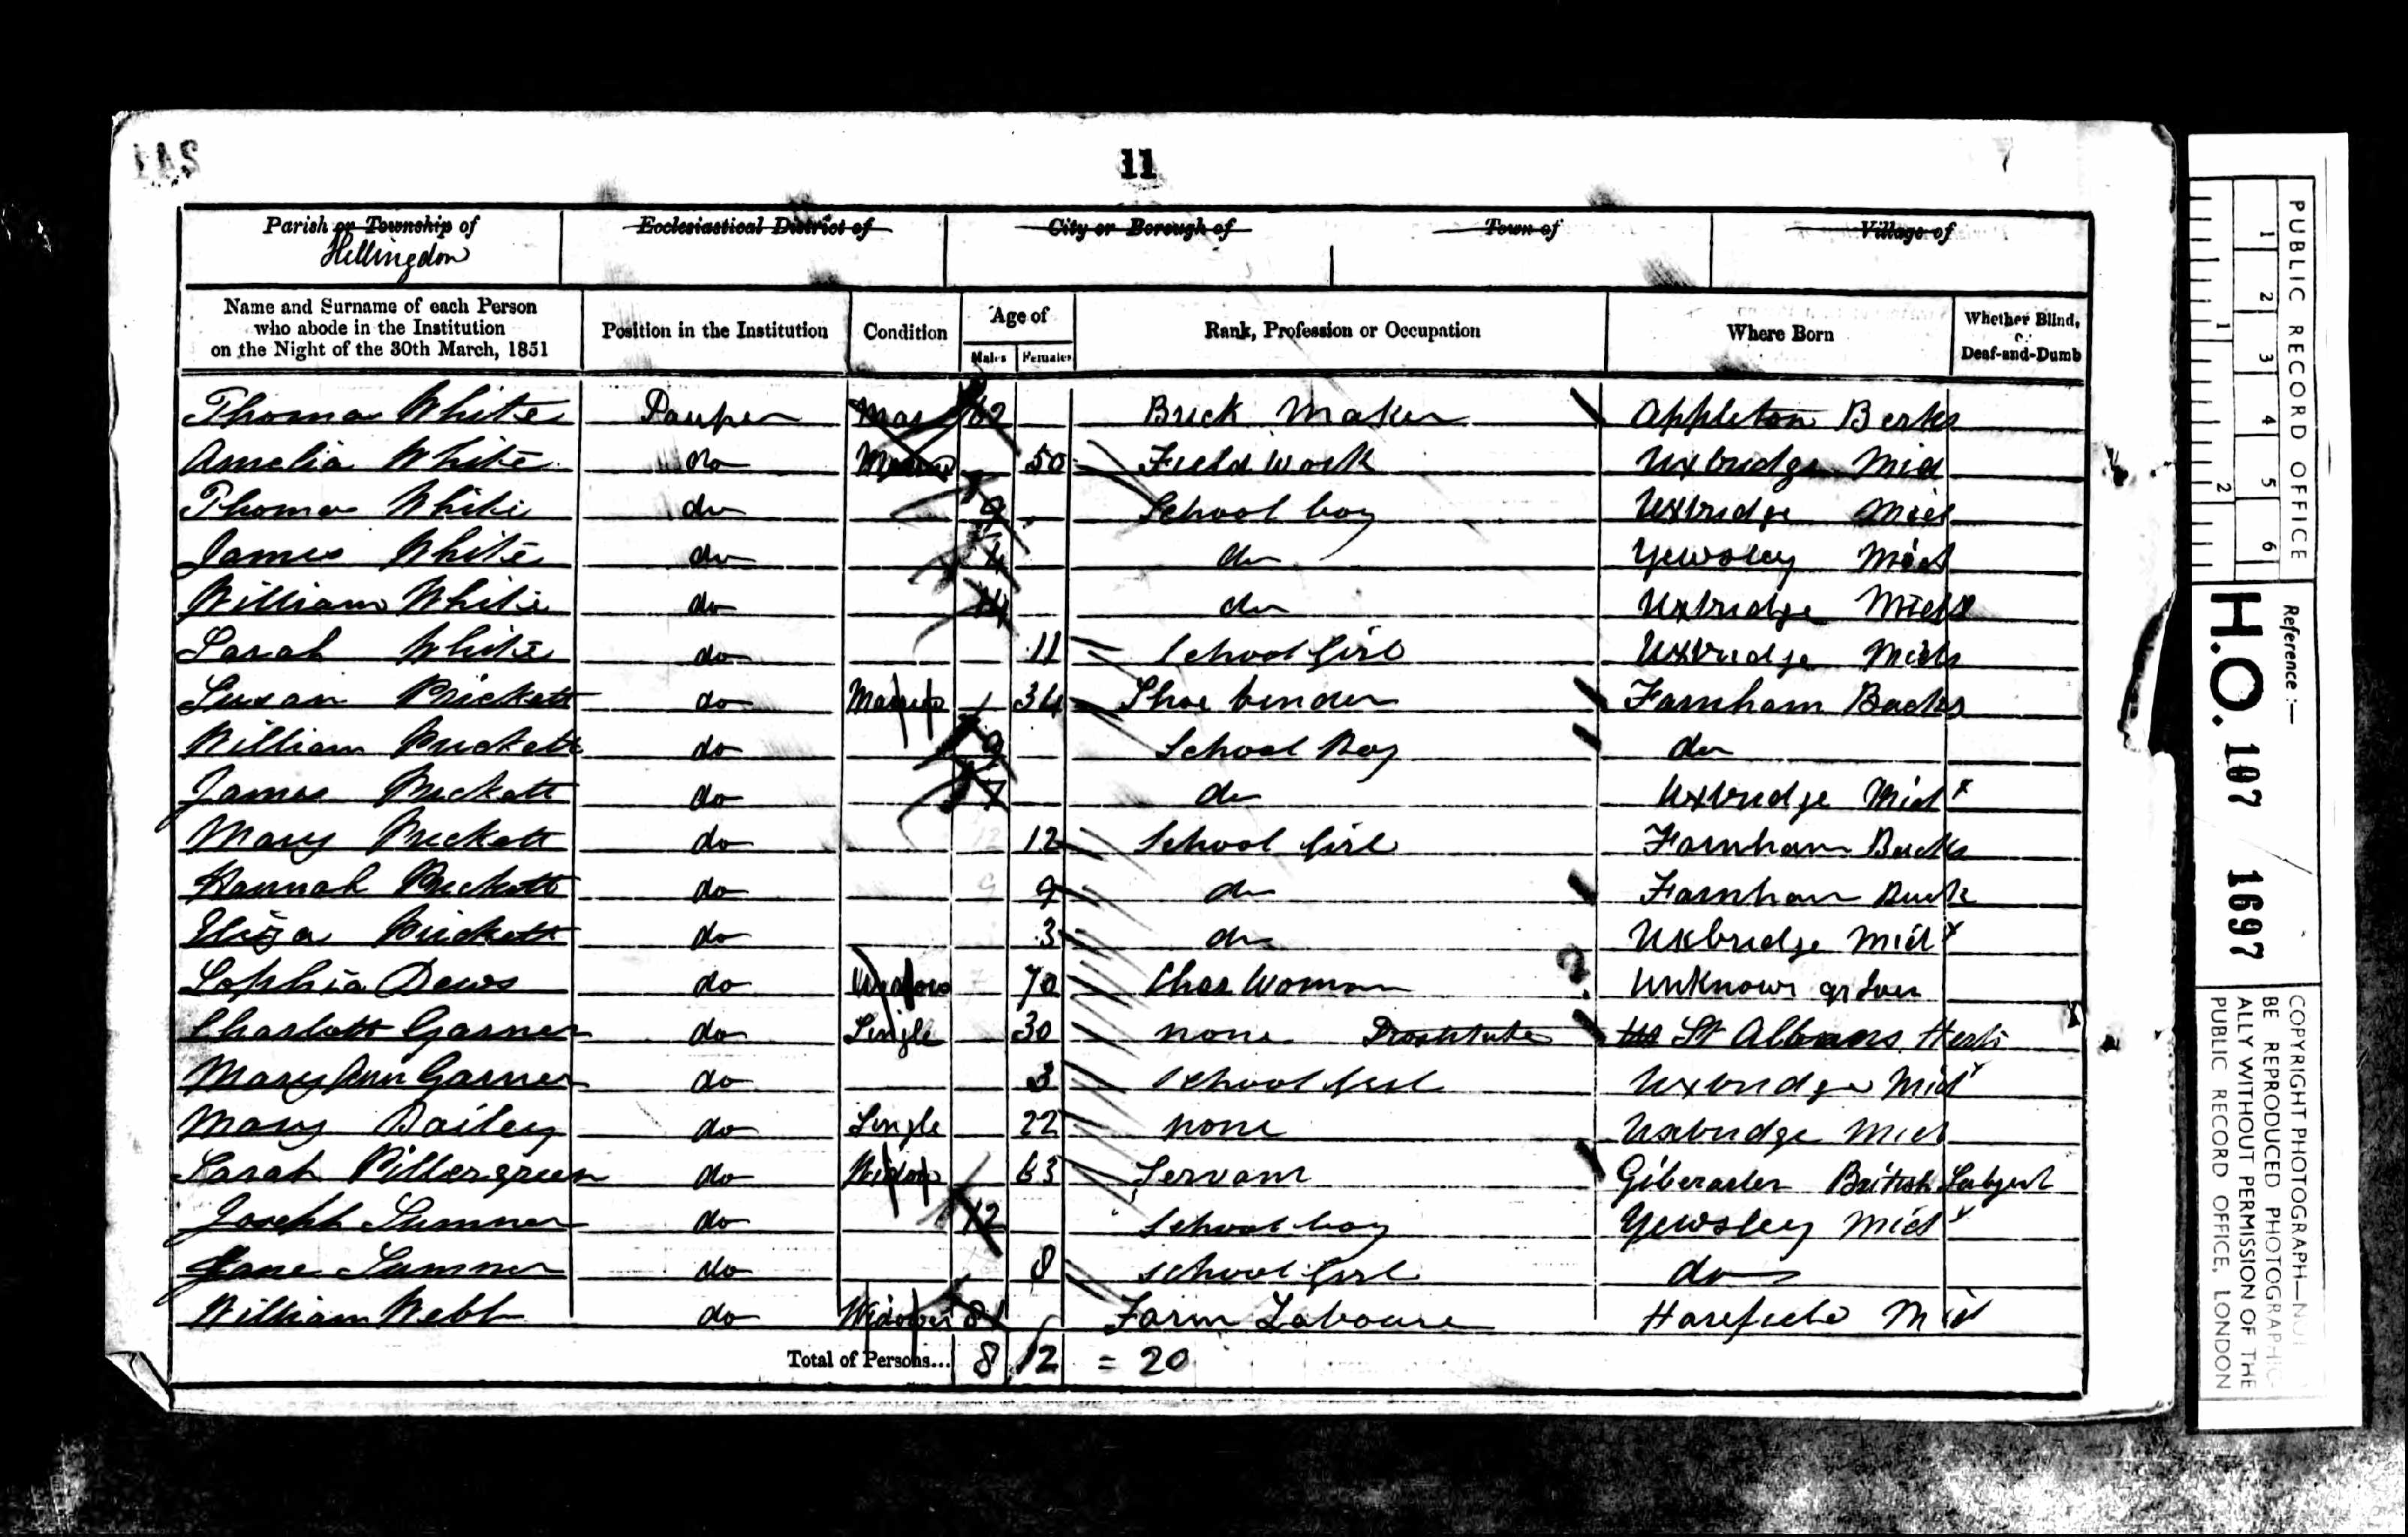 11
Parish or Township of Hillingdon
Ecclesiastical District of
City or Borough of
Town of
Village of
Name and Surname of each Person who abode in the Institution on the Night of the 30th March, 1851
Position in the Institution
Condition
Age of
Males Females
Rank, Profession or Occupation
Where Born
Whether Blind, or Deaf-and-Dumb
Thomas White Pauper Mar 62 Brick Maker Appleton Berks
Amelia White do Married 50 Field Work Uxbridge Mid
Thomas White do 9 School boy Uxbridge Mid
James White do do Yewsley Mid
William White do 14 do Uxbridge Midx
Sarah White do 11 School Girl Uxbridge Midx
Susan Prickett do Married 34 Shoe binder Farnham Bucks
William Prickett do 9 School Boy do
James Prickett do 7 do Uxbridge Midx
Mary Prickett do 12 School Girl Farnham Bucks
Hannah Prickett do 9 do Farnham Buck
Eliza Prickett do 3 do Uxbridge Midx
Sophia Dews do Widow 70 Char Woman Unknown
Charlott Garner do Single 30 none Prostitute St Albans Herts
Mary Ann Garner do 3 School Girl Uxbridge Midx
Mary Bailey do Single 22 none Uxbridge Mid
Sarah Pittergreen do Widow 63 Servant Giberalter British Subject
Joseph Sumner do 12 School boy Yewsley Midx
Jane Sumner do 8 School Girl do
William Webb do Widower 81 Farm Laboure Harefield Mid
Total of Persons... 8 12 = 20
PUBLIC RECORD OFFICE
1 2 3 4 5 6
1 2
Reference :—
H.O. 107 / 1697
COPYRIGHT PHOTOGRAPH—NOT
BE REPRODUCED PHOTOGRAPHIC
ALLY WITHOUT PERMISSION OF THE
PUBLIC RECORD OFFICE, LONDON